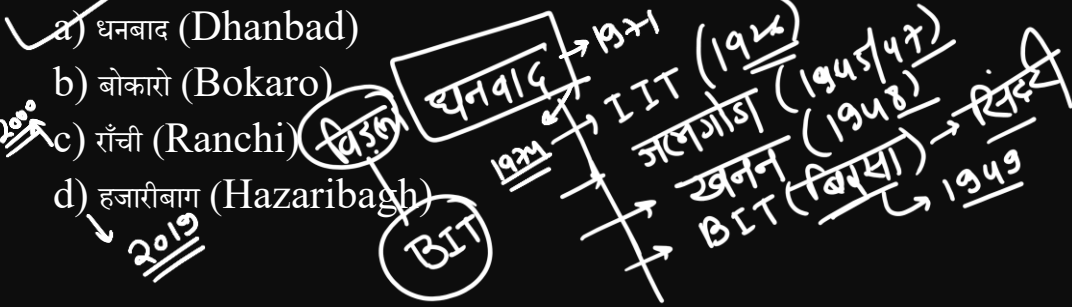 a) धनबाद (Dhanbad)
b) बोकारो (Bokaro)
c) राँची (Ranchi)
d) हजारीबाग (Hazaribagh)
2000
2019
बिड़ला
BIT
धनबाद
1971
1974
IIT (1926)
जलगोडा (1945/47)
खनन (1948)
BIT (बिरसा) → सिंदरी
1949